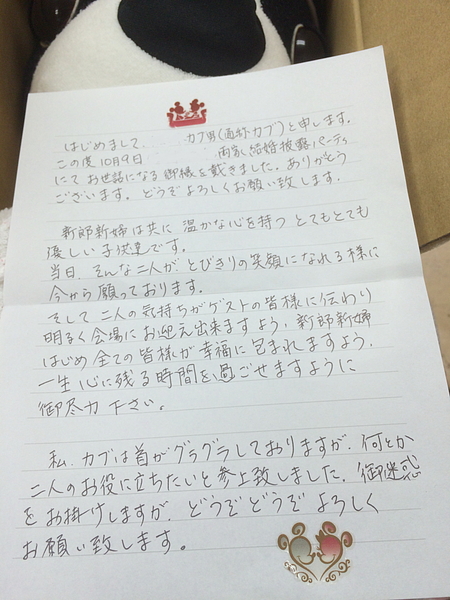 はじめまして、 カブ男(通称カブ)と申します。
この度10月9日 両家結婚披露パーティ
にてお世話になる御縁を戴きました。ありがとう
ございます。どうぞよろしくお願い致します。
新郎新婦は共に温かな心を持つとてもとても
優しい子供達です。
当日、そんな二人が、とびきりの笑顔になれる様に
今から願っております。
そして二人の気持ちがゲストの皆様に伝わり
明るく会場にお迎え出来ますよう、新郎新婦
はじめ全ての皆様が幸福に包まれますよう、
一生心に残る時間を過ごせますように
御尽力下さい。
私、カブは首がグラグラしておりますが、何とか
二人のお役に立ちたいと参上致しました。御迷惑
をお掛けしますが、どうぞどうぞよろしく
お願い致します。